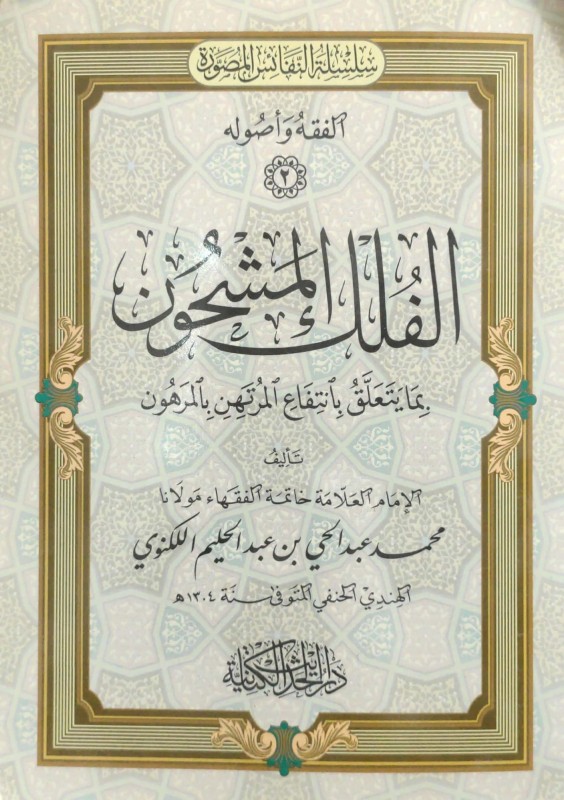 سِلْسِلَةُ النَّفَائِسِ المُصَوَّرَة
الفقهُ وَأصُوله
٢
الفُلك المَشْحُون
بِمَا يَتَعَلَّقُ بِٱنتِفَاعِ المُرْتَهِنِ بِالمَرهُون
تَأليفُ
الإمَام العَلَّامَة خَاتمَة الفُقَهَاء مَولَانا
محمد عبد الحي بن عبد الحليم اللكنوي
الهِنديّ الحَنفي المتَوفى سَنَة ١٣٠٤هـ